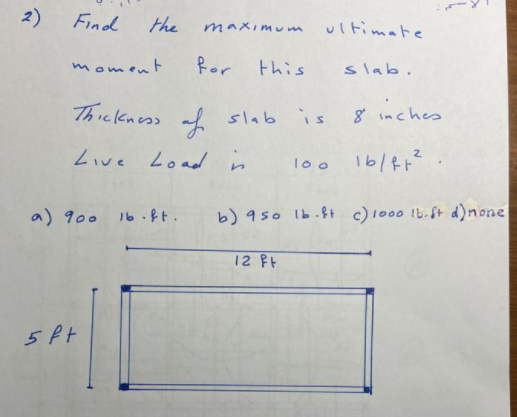 2) Find the maximum ultimate
moment for this slab.
Thickness of slab is 8 inches
Live Load is 100 lb/ft².
a) 900 lb.ft. b) 950 lb.ft c) 1000 lb.ft d) none
12 ft
5 ft